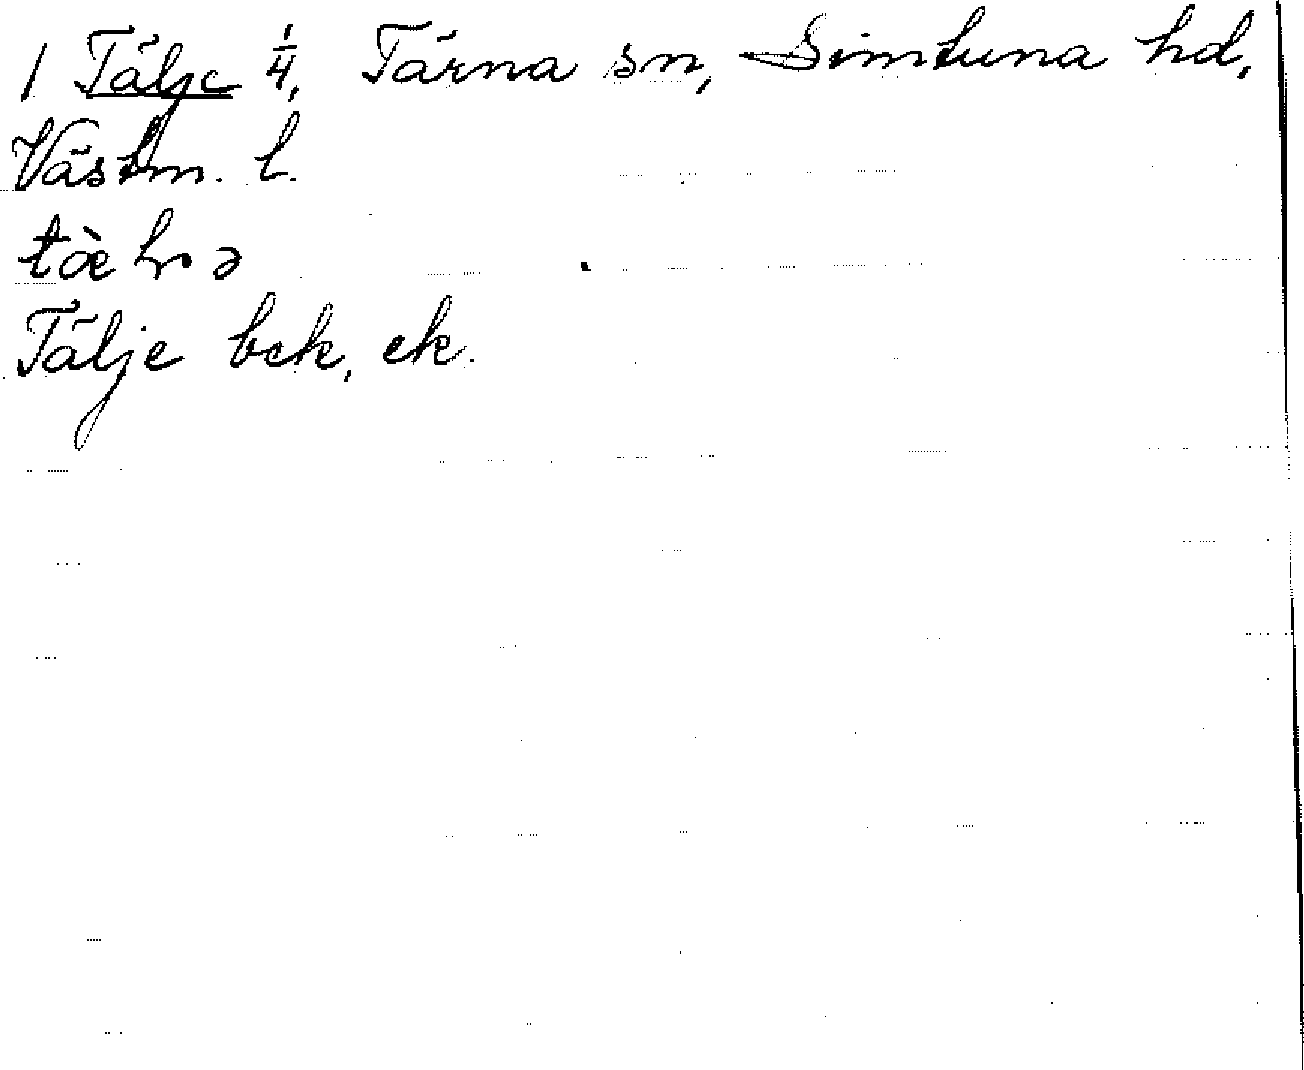 1 Tälje 1/4, Tärna sn, Simtuna hd,
Västm. l.
Tälje bek, ek.